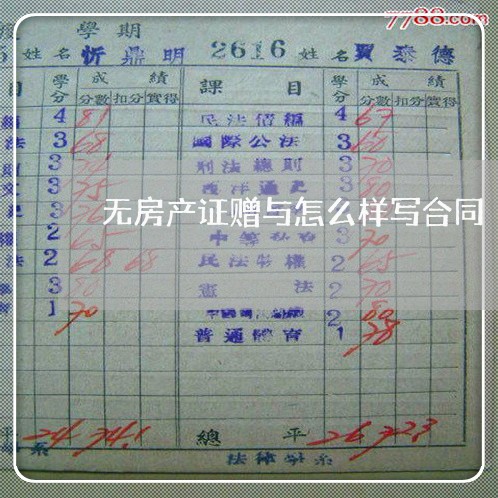 7788.com
學期
姓名 忻鼎明 2616 姓名 賈泰德
目 學分 成績 分數 扣分 實得 課目 學分 成績 分數 扣分 實得
4 81 民法債編 4 67
法 3 68 國際公法 3 60
3 刑法總則 3 70
3 75 西洋通史 3 80
無房产证赠与怎么样写合同
2 65 3 70
法 2 68 68 民法物權 2 65
3 80 憲法 2 70
1 70 2 80
普通體育 1 78
平 24 74.1 總平 26 72.3
系 法律學系